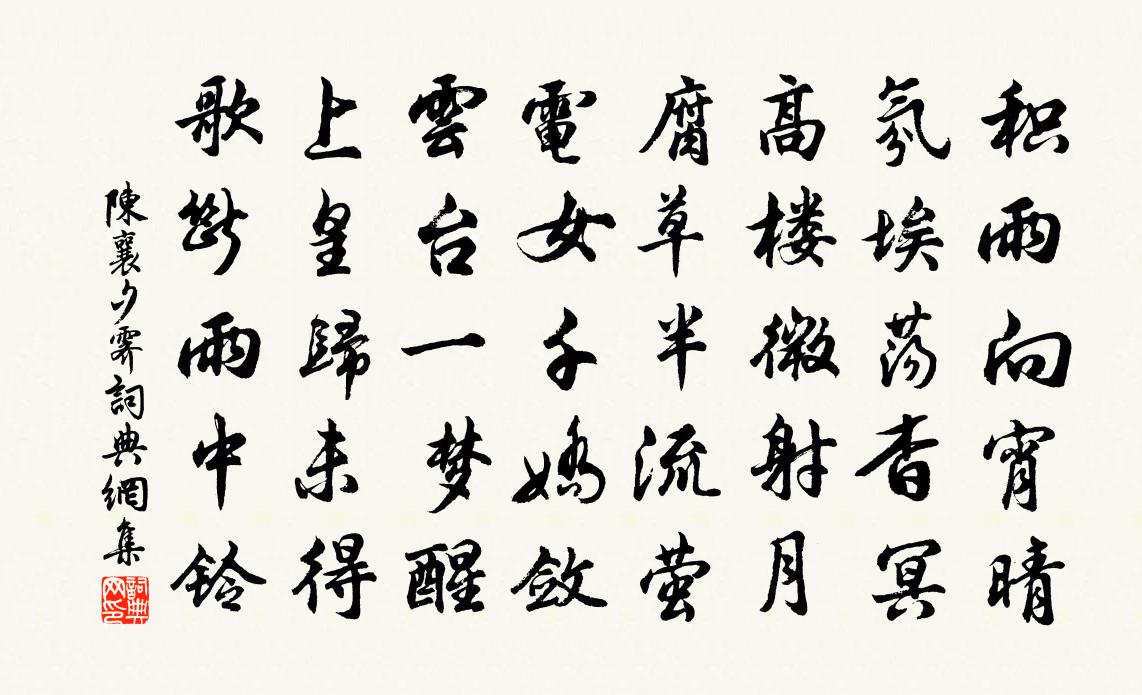 积雨向宵晴
氛埃荡杳冥
高楼微射月
腐草半流萤
電女千嬌斂
雲台一梦醒
上皇歸未得
歌斷雨中铃
陳襄夕霽詞典網集
詞典网印